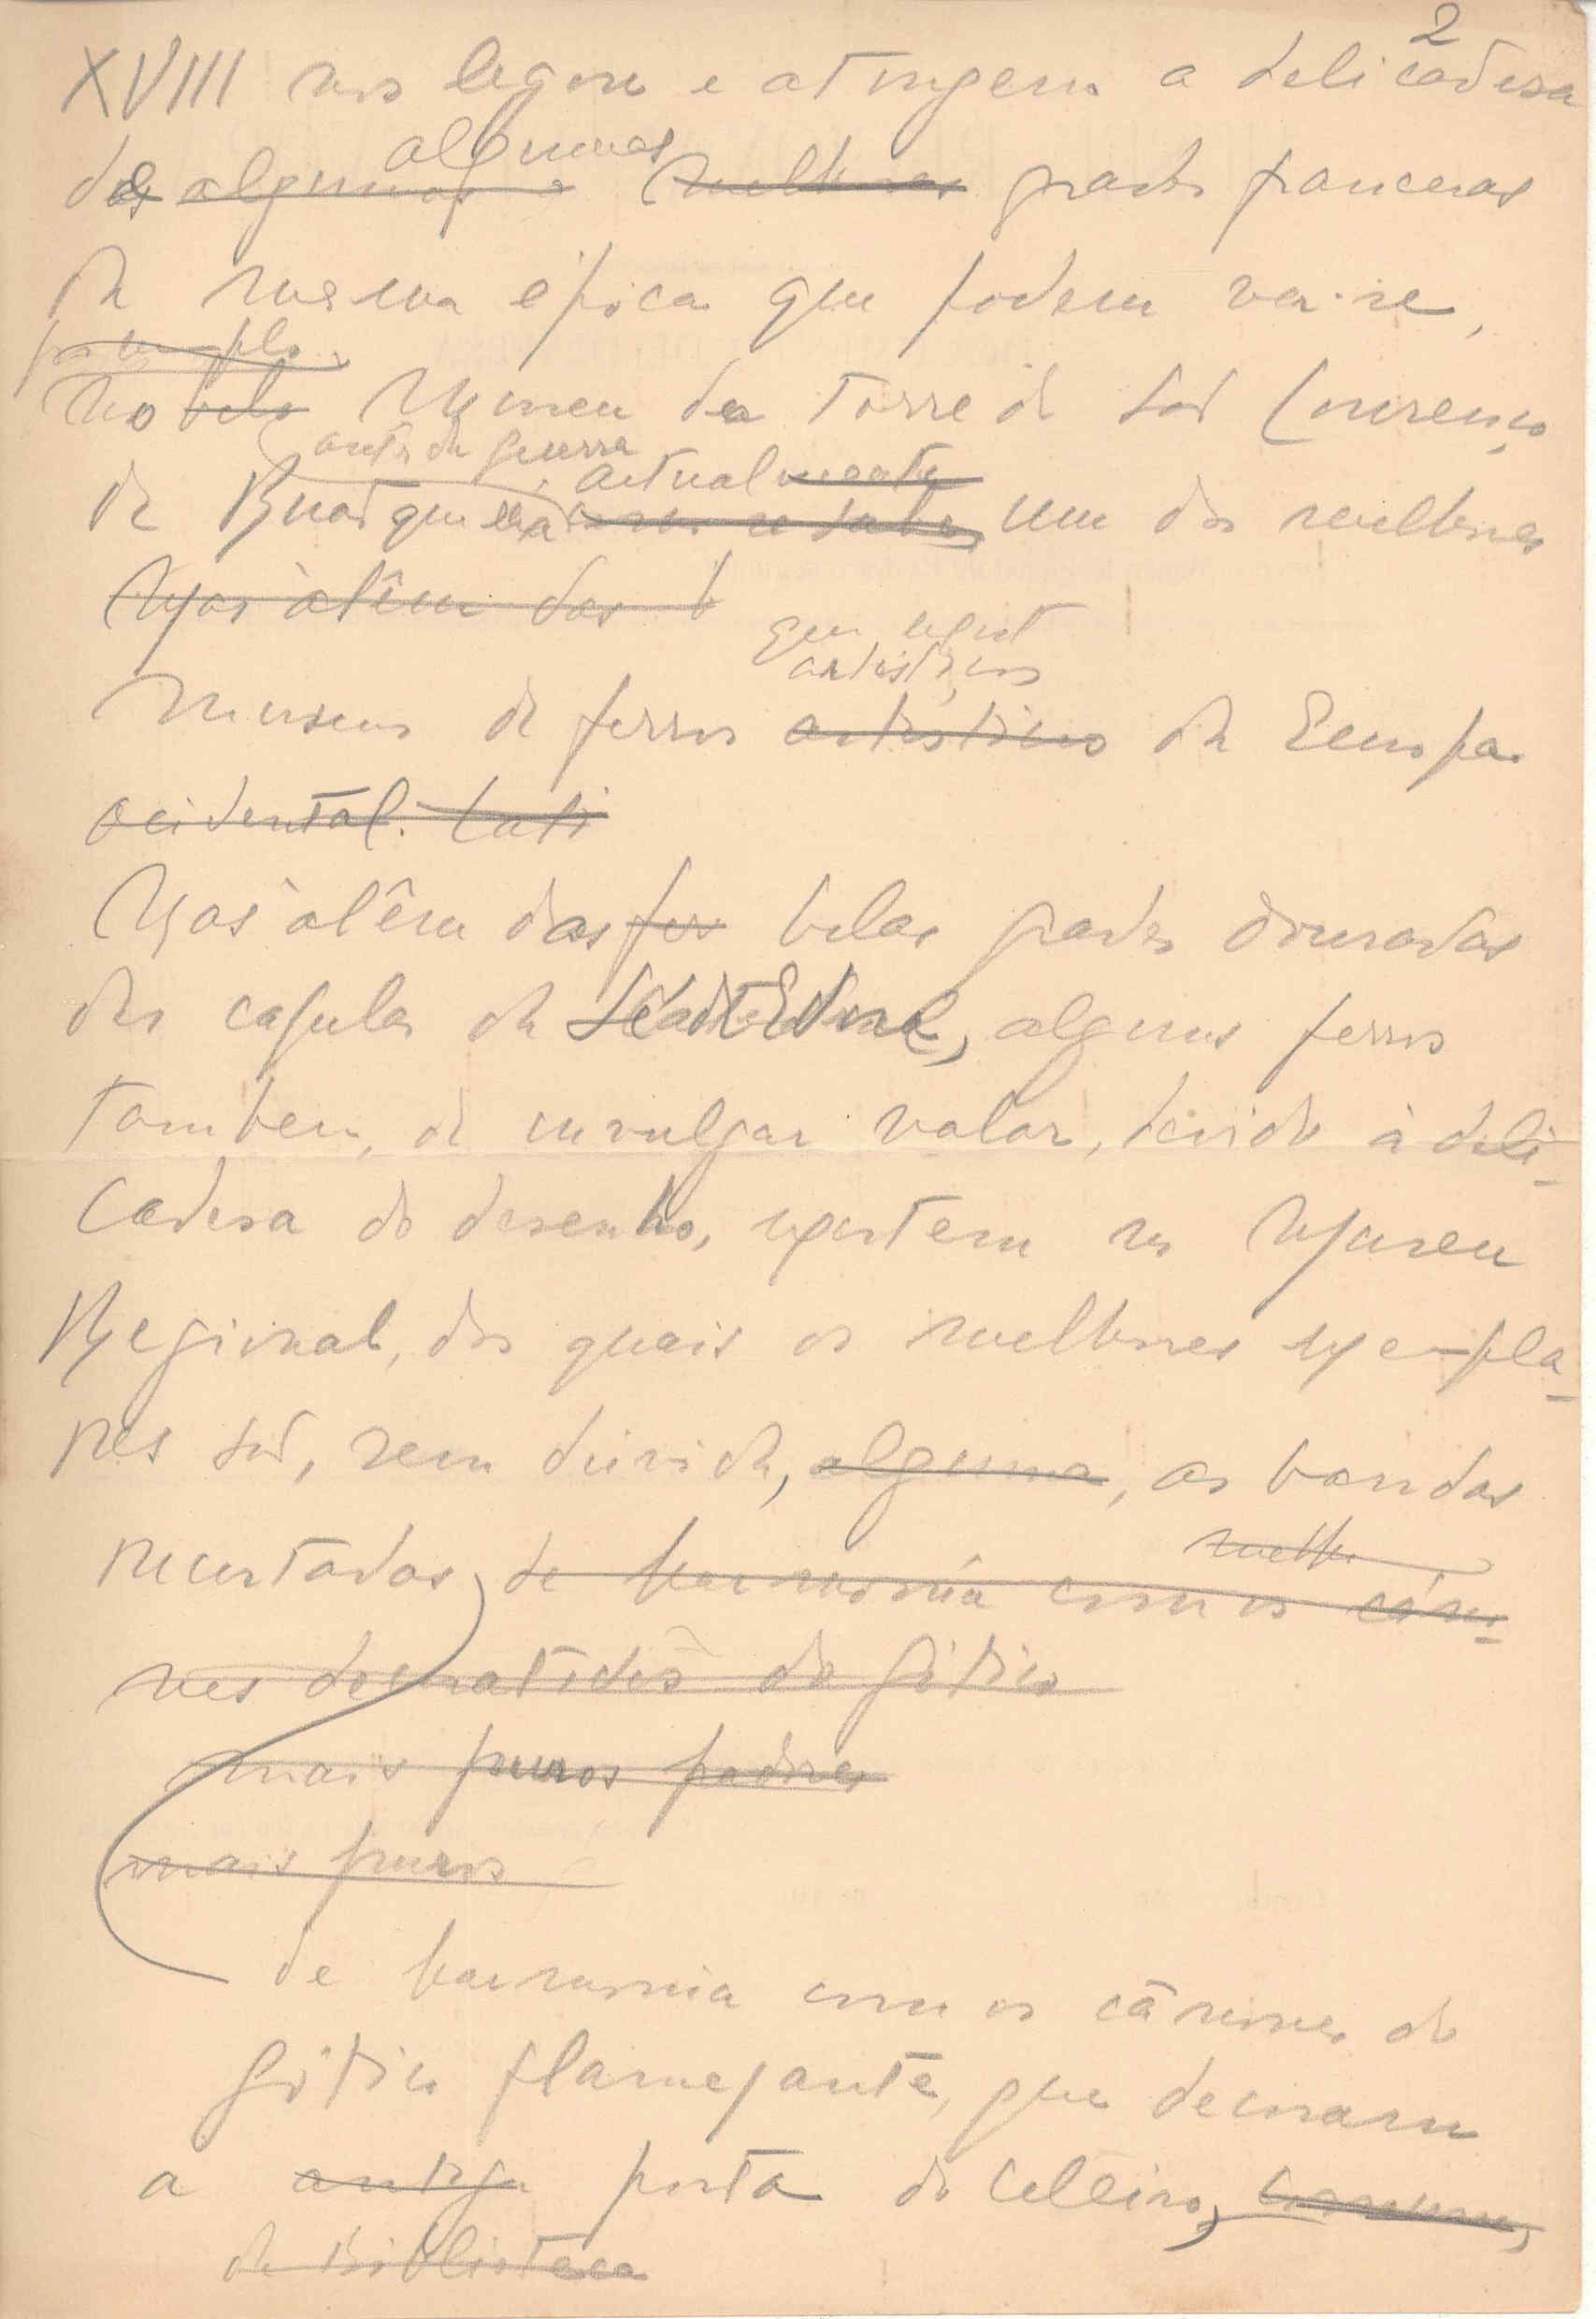 2
XVIII nos legou e atingem a delicadesa
algumas
de algumas melhores grades francesas
da mesma época que podem ver-se,
por exemplo
no belo Museu da Torre de São Lourenço
antes da guerra
actualmente
de Ruão que era um dos melhores
Mas àlêm das b
artisticos
museus de ferros artisticos da Europa
ocidental.
Mas àlêm das fer belas grades douradas
das capelas da Sé Catedral, alguns ferros
tambem, de invulgar valor, devido à deli-
cadesa do desenho, existem no Museu
Regional, dos quais os melhores exempla-
res são, sem dúvida, alguma, as bandas
recortadas de harmonia com os cár-
melhor
nes do gótico
mais puros padrões
mais puros
de harmonia com os cânones do
gótico flamejante, que decoram
a antiga porta do celeiro, comum,
da Biblioteca